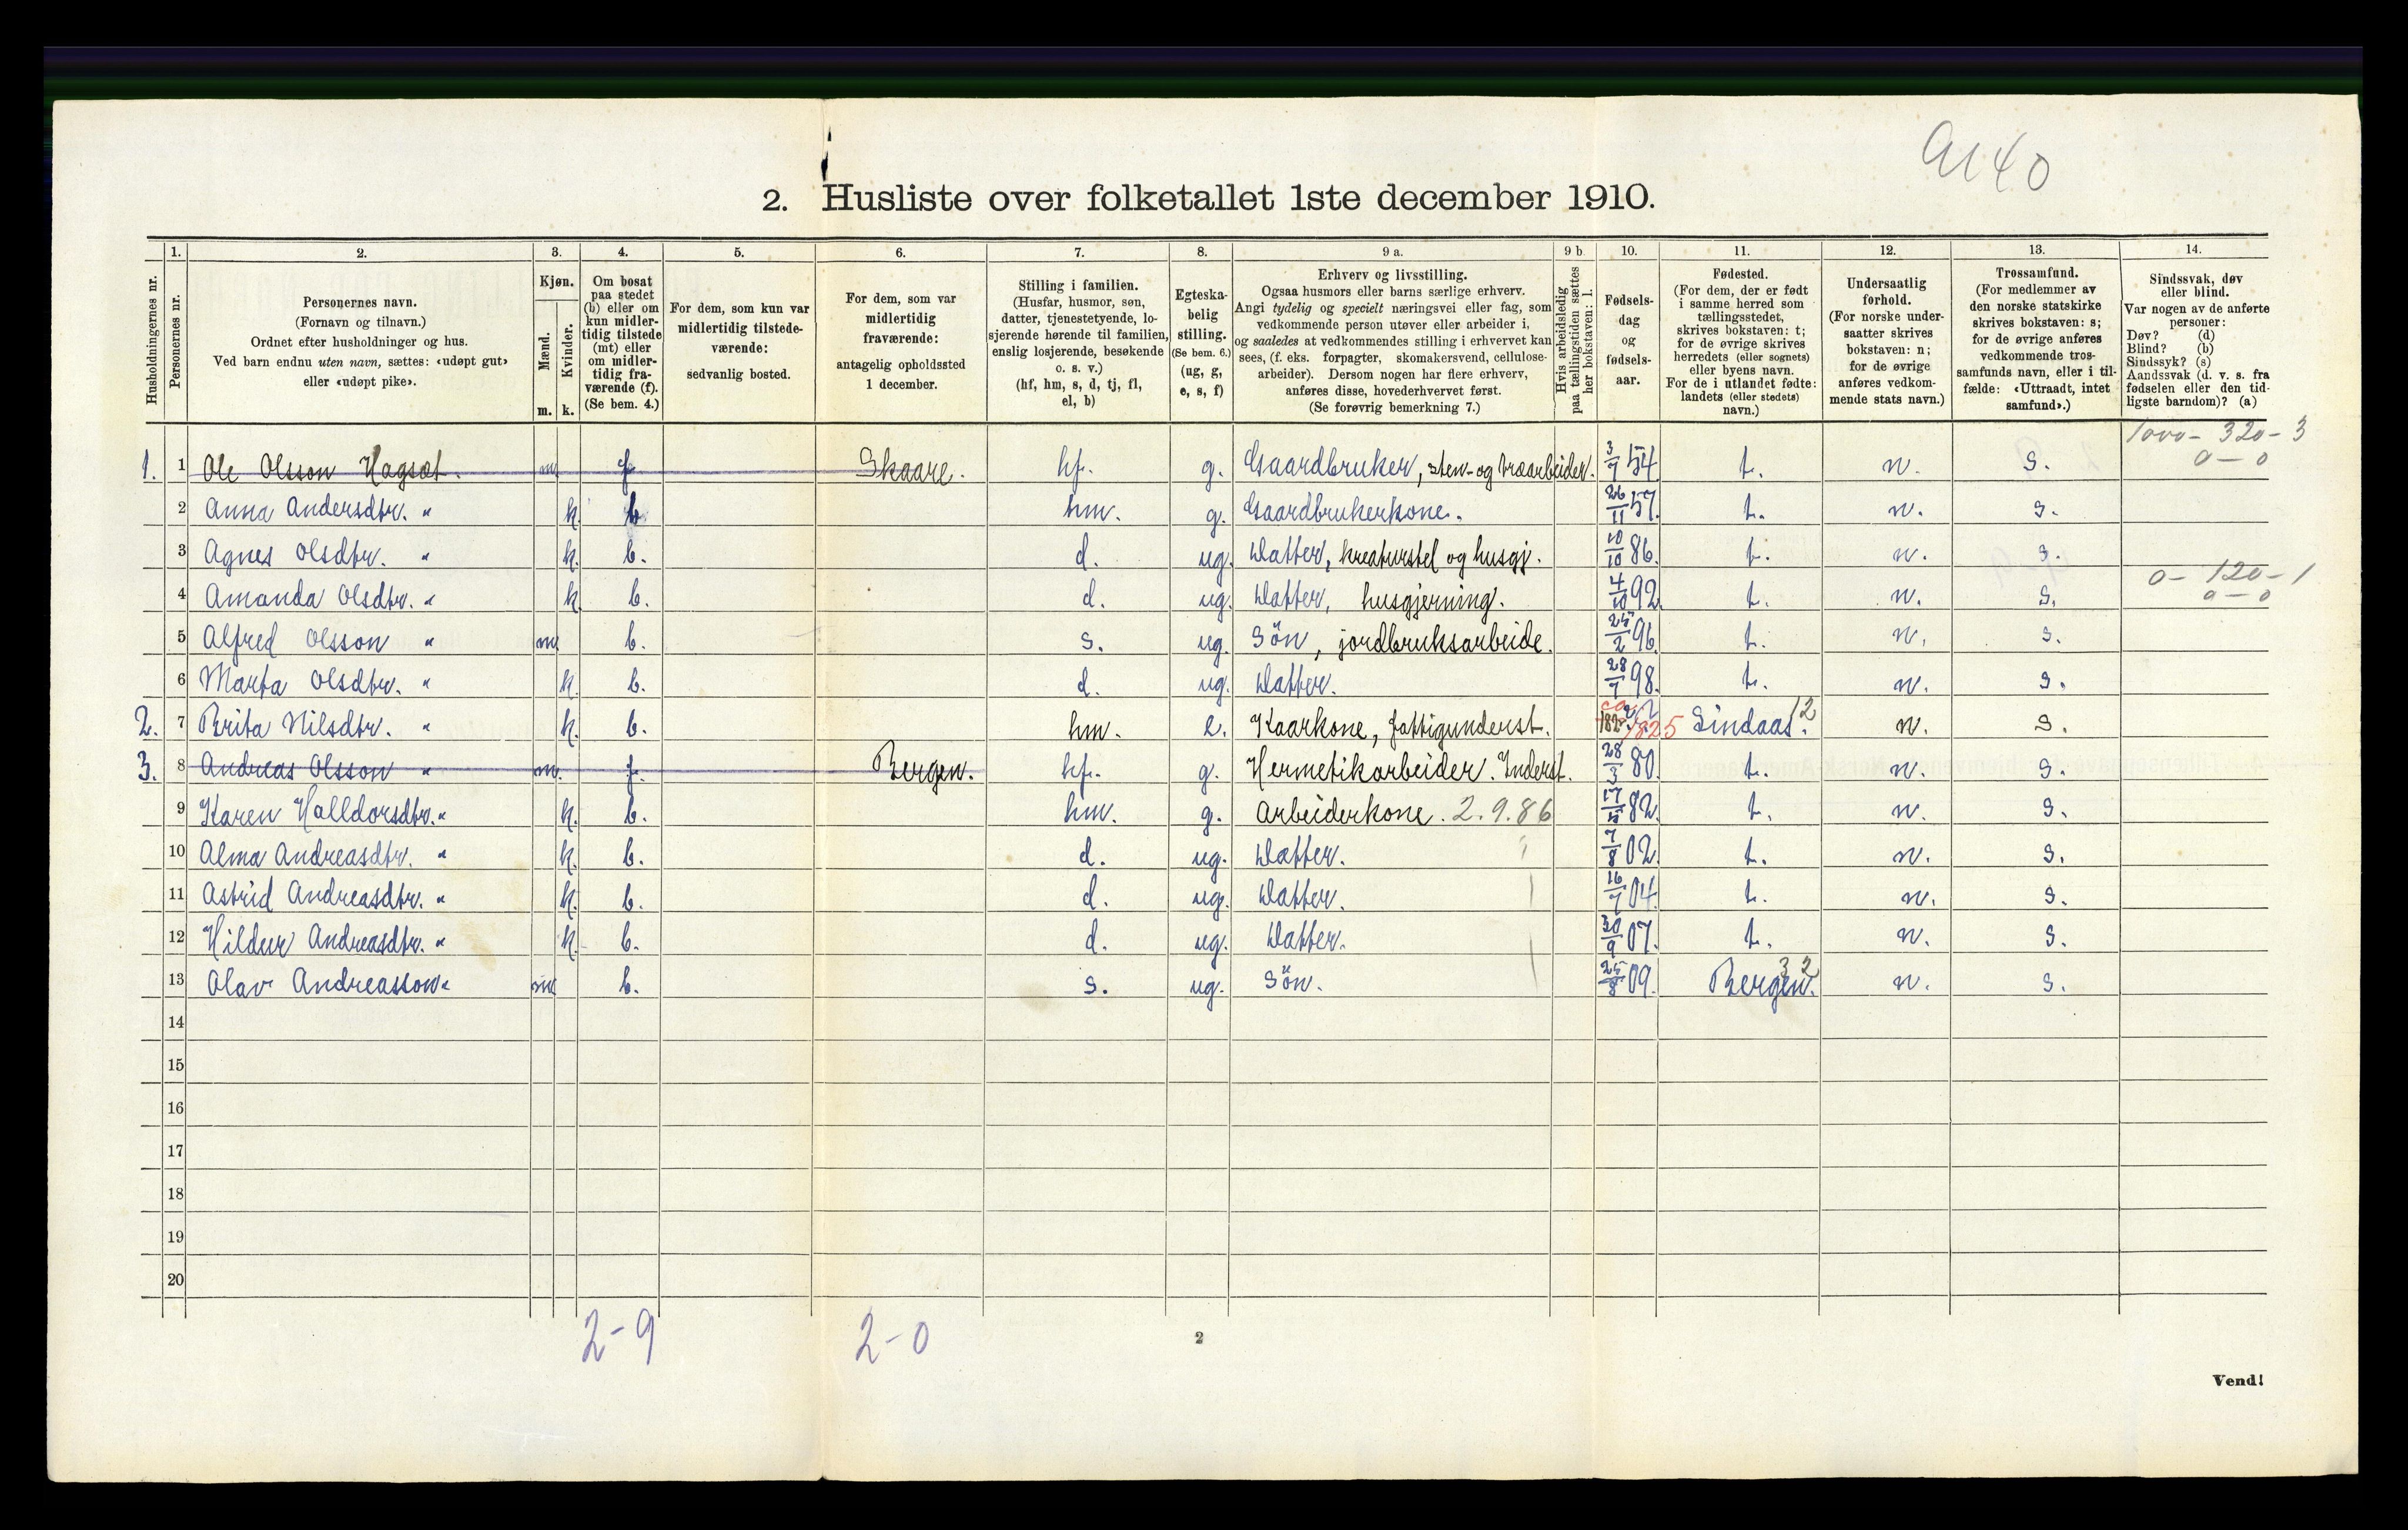 9140
2. Husliste over folketallet 1ste december 1910.
Husholdningernes nr.
1. Personernes nr.
2. Personernes navn. (Fornavn og tilnavn.) Ordnet efter husholdninger og hus. Ved barn endnu uten navn, sættes: «udøpt gut» eller «udøpt pike».
3. Kjøn. Mænd. m. Kvinder. k.
4. Om bosat paa stedet (b) eller om kun midler-tidig tilstede (mt) eller om midler-tidig fra-værende (f). (Se bem. 4.)
5. For dem, som kun var midlertidig tilstede-værende: sedvanlig bosted.
6. For dem, som var midlertidig fraværende: antagelig opholdssted 1 december.
7. Stilling i familien. (Husfar, husmor, søn, datter, tjenestetyende, lo-sjerende hørende til familien, enslig losjerende, besøkende o. s. v.) (hf, hm, s, d, tj, fl, el, b)
8. Egteska-belig stilling. (Se bem. 6.) (ug, g, e, s, f)
9 a. Erhverv og livsstilling. Ogsaa husmors eller barns særlige erhverv. Angi tydelig og specielt næringsvei eller fag, som vedkommende person utøver eller arbeider i, og saaledes at vedkommendes stilling i erhvervet kan sees, (f. eks. forpagter, skomakersvend, cellulose-arbeider). Dersom nogen har flere erhverv, anføres disse, hovederhvervet først. (Se forøvrig bemerkning 7.)
9 b. Hvis arbeidsledig paa tællingstiden sættes her bokstaven: l.
10. Fødsels-dag og fødsels-aar.
11. Fødested. (For dem, der er født i samme herred som tællingsstedet, skrives bokstaven: t; for de øvrige skrives herredets (eller sognets) eller byens navn. For de i utlandet fødte: landets (eller stedets) navn.)
12. Undersaatlig forhold. (For norske under-saatter skrives bokstaven: n; for de øvrige anføres vedkom-mende stats navn.)
13. Trossamfund. (For medlemmer av den norske statskirke skrives bokstaven: s; for de øvrige anføres vedkommende tros-samfunds navn, eller i til-fælde: «Uttraadt, intet samfund».)
14. Sindssvak, døv eller blind. Var nogen av de anførte personer: Døv? (d) Blind? (b) Sindssyk? (s) Aandssvak (d. v. s. fra fødselen eller den tid-ligste barndom)? (a)
1000 - 320 - 3
1. 1 Ole Olsson Hagsæt. m. f. Skaare. hf. g. Gaardbruker, sten- og træarbeider. 3/7 54. t. n. s. 0 - 0
2 Anna Andersdtr. " k. b. hm. g. Gaardbrukerkone. 26/11 57. t. n. s.
3 Agnes Olsdtr. " k. b. d. ug. Datter, kreaturstel og husgj. 10/10 86. t. n. s.
4 Amanda Olsdtr. " k. b. d. ug. Datter, husgjerning. 4/10 92. t. n. s. 0 - 120 - 1
0 - 0
5 Alfred Olsson " m. b. s. ug. Sön, jordbruksarbeide. 25/2 96. t. n. s.
6 Marta Olsdtr. " k. b. d. ug. Datter. 28/7 98. t. n. s.
2. 7 Brita Nilsdtr. " k. b. hm. e. Kaarkone, fattigunderst. ca. 1825 Lindaas. 12 n. s.
3. 8 Andreas Olsson " m. f. Bergen. hf. g. Hermetikarbeider. Inderst. 28/3 80. t. n. s.
9 Karen Halldorsdtr. " k. b. hm. g. Arbeiderkone. 2.9.86 82. t. n. s.
10 Alma Andreasdtr. " k. b. d. ug. Datter. 7/8 02. t. n. s.
11 Astrid Andreasdtr. " k. b. d. ug. Datter. 16/7 04. t. n. s.
12 Hildur Andreasdtr. " k. b. d. ug. Datter. 30/9 07. t. n. s.
13 Olav Andreasson " m. b. s. ug. Sön. 25/8 09. Bergen. 32 n. s.
14
15
16
17
18
19
20
2 - 9 2 - 0
2
Vend!